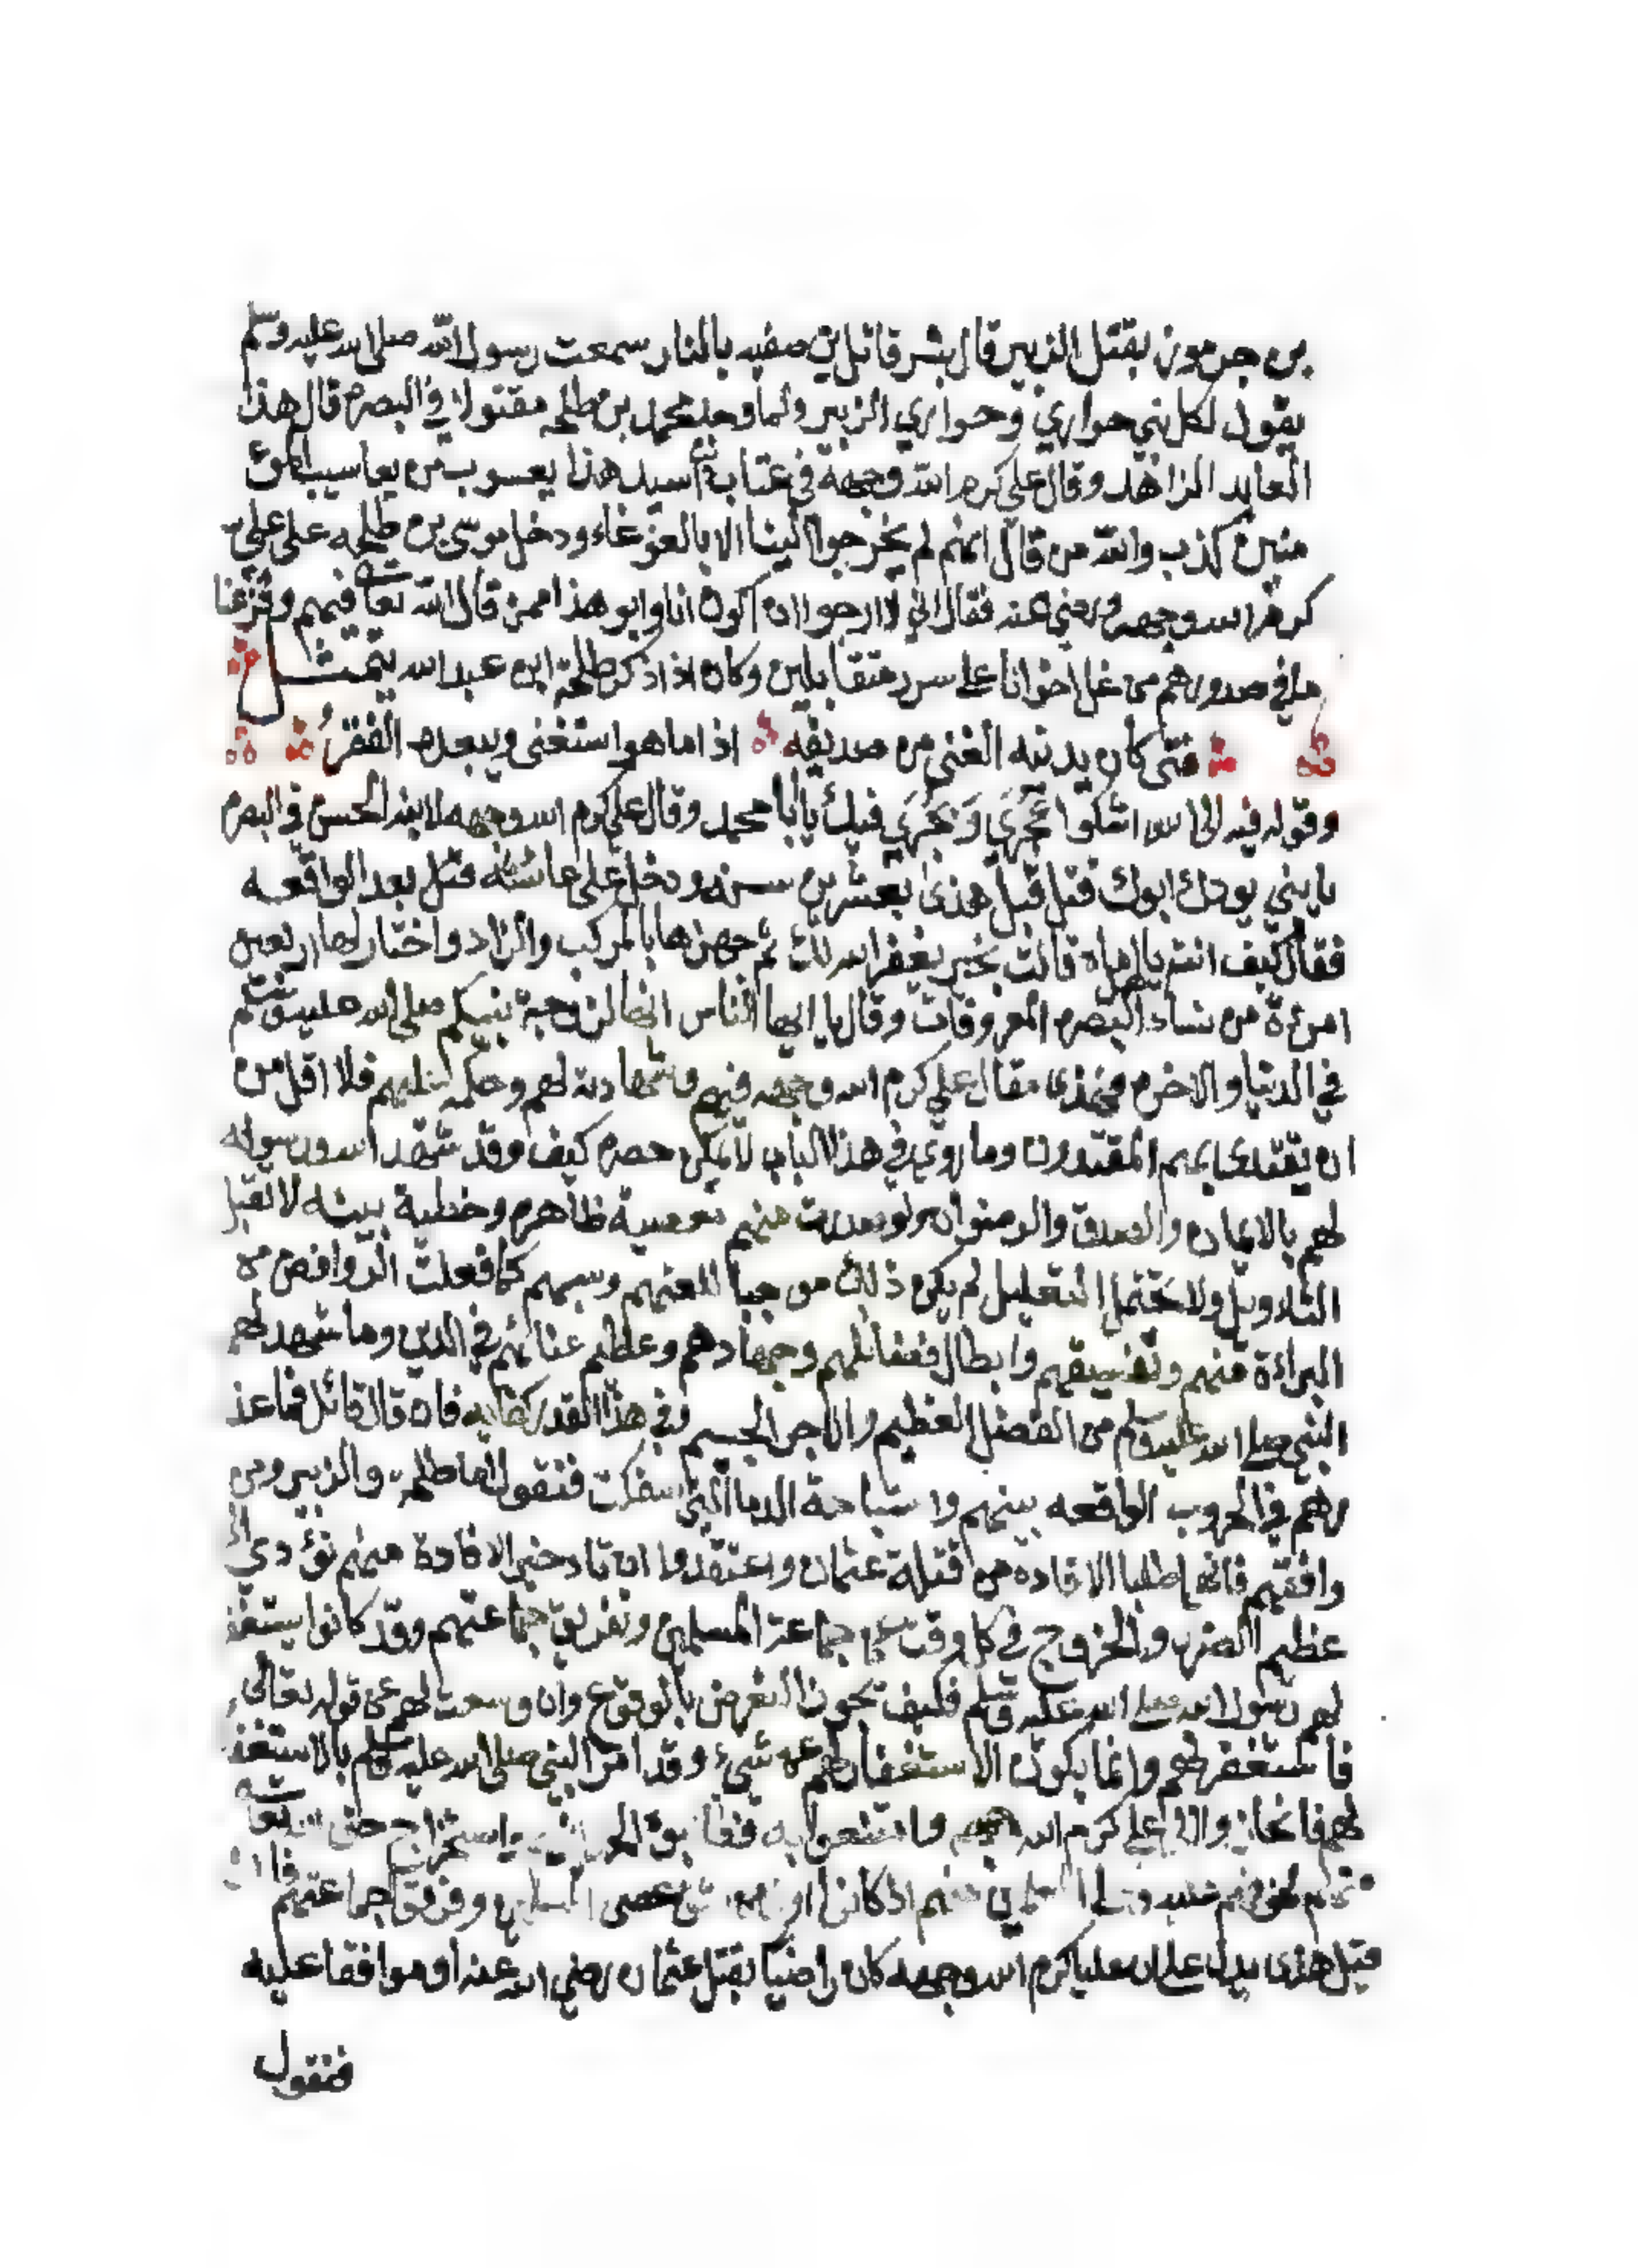 بن جرموز بقتل الزبير قال بشر قاتل بن صفيه بالنار سمعت رسول الله صلى الله عليه وسلم
يقول لكل نبي حواري وحواري الزبير ولما وجد محمد بن طلحه مقتولا في البصره قال هذا
العابد الزاهد وقال علي كرم الله وجهه في عتاب بن أسيد هذا يعسوب من يعاسيب المؤ
منين كذب والله من قال انهم لم يخرجوا الينا الا بالغوغاء ودخل موسى بن طلحه على علي
كرم الله وجهه ورضي عنه فقال اني لا ارجوا ان اكون انا وابو هذا ممن قال الله تعا فيهم ونزعنا
ما في صدورهم من غل اخوانا على سرر متقابلين وكان اذا ذكر طلحة ابن عبد الله يتمثل
فتى كان يدنيه الغنى من صديقه اذا ما هو استغنى ويبعده الفقرُ
وقوله فيه الى الله اشكوا عُجَري وَبُجَري فيك يا أبا محمد وقال علي كرم الله وجهه لابنه الحسن في البصره
يا بني يودك ابوك قتل قبل هذى بعشرين سنه ودخل على عائشه قتل بعد الواقعه
فقال كيف انت يا اماه قالت بخير يغفر الله لك ثم جهزها بالمركب والزاد واختار لها اربعين
امرءة من نساء البصره المعروفات وقال يا ايها الناس انها لزوجة نبيكم صلى الله عليه وسلم
في الدنيا والاخره فهذى مقال علي كرم الله وجهه فيهم وشهادته لهم وحكمه عليهم فلا اقل من
ان يقتدى بهم المقتدرون وما روي في هذا الباب لا يمكن حصره كيف وقد شهد الله ورسوله
لهم بالايمان والصدق والرضوان ولو صدرت منهم معصية ظاهره وخطية بينه لا تقبل
التاءويل ولا تحتمل التعليل لم يكن ذلك موجبا للعنهم وسبهم كما فعلت الروافض من
البراءة منهم وتفسيقهم وابطال فضائلهم وجهادهم وعظيم عنائهم في الدين وما شهد لهم
النبي صلى الله عليه وسلم من الفضل العظيم والاجر الجسيم وفي هذا القدر كفايه فان قال قائل فما عذ
رهم في الحروب الواقعه بينهم واستباحة الدما التي سفكت فنقول اما طلحة والزبير ومن
وافقهم فانهما طلبا الاقاده من قتلة عثمان واعتقدوا ان تاءخير الاقادة منهم تؤدي الى
عظيم الضرر والخروج في كل وقت على جماعة المسلمين وتفريق جماعتهم وقد كانوا يستغفر
لهم رسول الله صلى الله عليه وسلم فكيف تجوز التعرض بالوقوع وان وسعت لهم عن قوله تعالى
فاستغفر لهم وانما يكون الاستغفار لهم عن شيء وقد امر النبي صلى الله عليه وسلم بالاستغفا
لهم علي كرم الله وجهه واستخراج حق الله تعا
منهم اذ كانوا عصى المسلمين وفرقوا جماعتهم فان
قيل هذى يدل على ان عليا كرم الله وجهه كان راضيا بقتل عثمان رضي الله عنه او موافقا عليه
فنقول